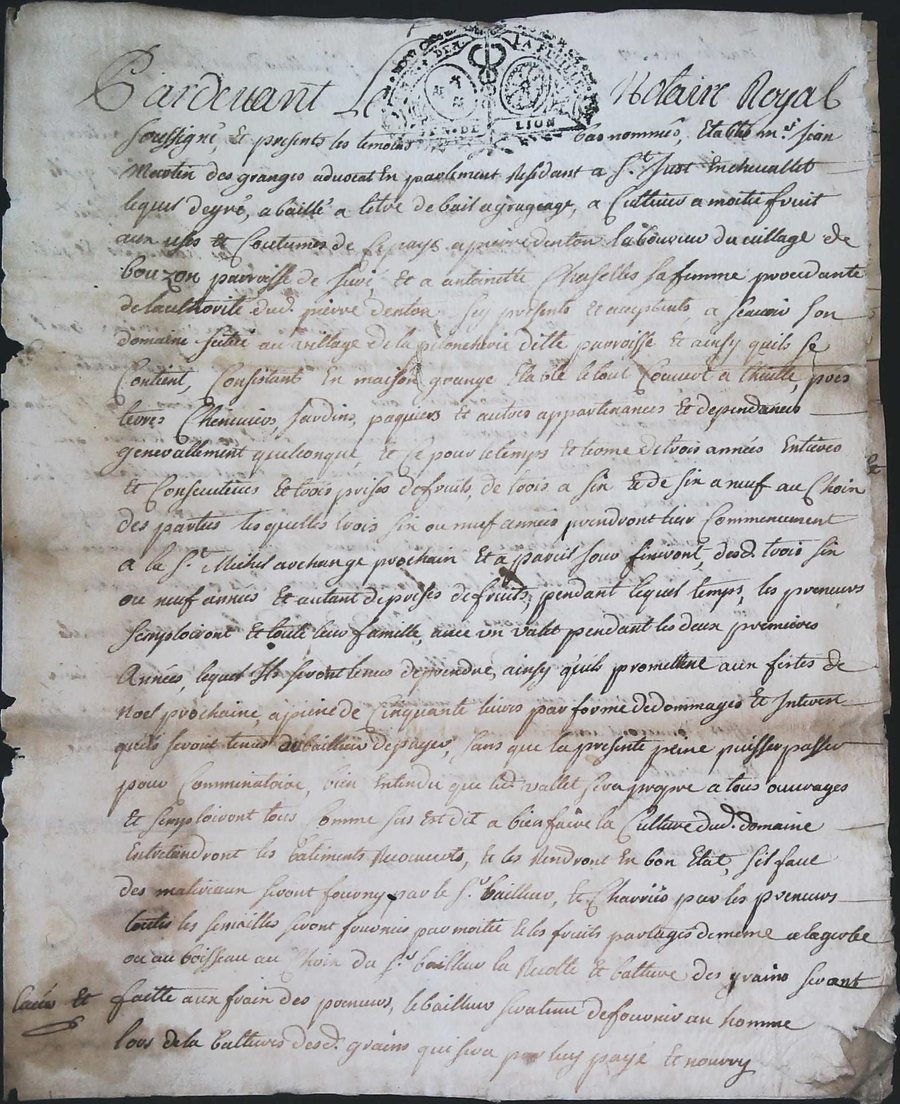 GEN. DE LA FEUILLE
GEN. DE LION
Pardevant Le Notaire Royal
soussigné, et presents les temoins bas nommés, Etably mr. jean
des granges advocat En parlement Residant a St. Just Enchevallet
lequel degré, a baillé a titre de bail a grageage, a Culture a moitié fruit
aux uses et Coutumes de Ce pays a pierre denton laboureur du village de
bouzon parroisse de juré et a antoinette Chaselles sa femme procedante
de lauthorité dud. pierre denton Icy presents et acceptants a scavoir son
domaine scitué au village de la dite parroisse et ainsy quils se
Contient, Consistant En maison grange Etable le tout Couvert a thuille, prés
terres Chenevier Jardins, paquiers et autres appartinances et dependances
generallement quelconque, et ce pour le temps et terme de trois années Entieres
et Consecutives et trois prises de fruits, de trois a six et de six a neuf au Choix
des parties lesquelles trois six ou neuf années prendront leur Commencement
a la St. Michel archange prochain et a pareil jour finiront, desd. trois six
ou neuf années et autant de prises de fruits, pendant lequel temps, les preneurs
semploiront et toute leur famille, avec un valet pendant les deux premieres
Années, lequel Ils seront tenus de prendre, ainsy quils promettent aux festes de
Noel prochaine, a peine de Cinquante livres par forme de dommages et Interest
quils seront tenus au bailleur de payer, sans que la presente peine puisse passer
pour Comminatoire, bien Entendu que led. vallet sera propre a tous ouvrages
et semploiront tous Comme sus est dit a bien faire la Culture dud. domaine
Entretiendront les batiments Recouverts, et les Rendront En bon Etat, sil faut
des materiaux seront fourny par le Sr. bailleur, et Charriés par les preneurs
toutes les semailles seront fournies par moitié et les fruits partagés de meme a la gerbe
ou au boisseau au Choix du Sr. bailleur la Recolte et batture des grains seront
faitte aux frais des preneurs, le bailleur sera tenu de fournir un homme
lors de la batture desd. grains qui sera par luy payé et nourry